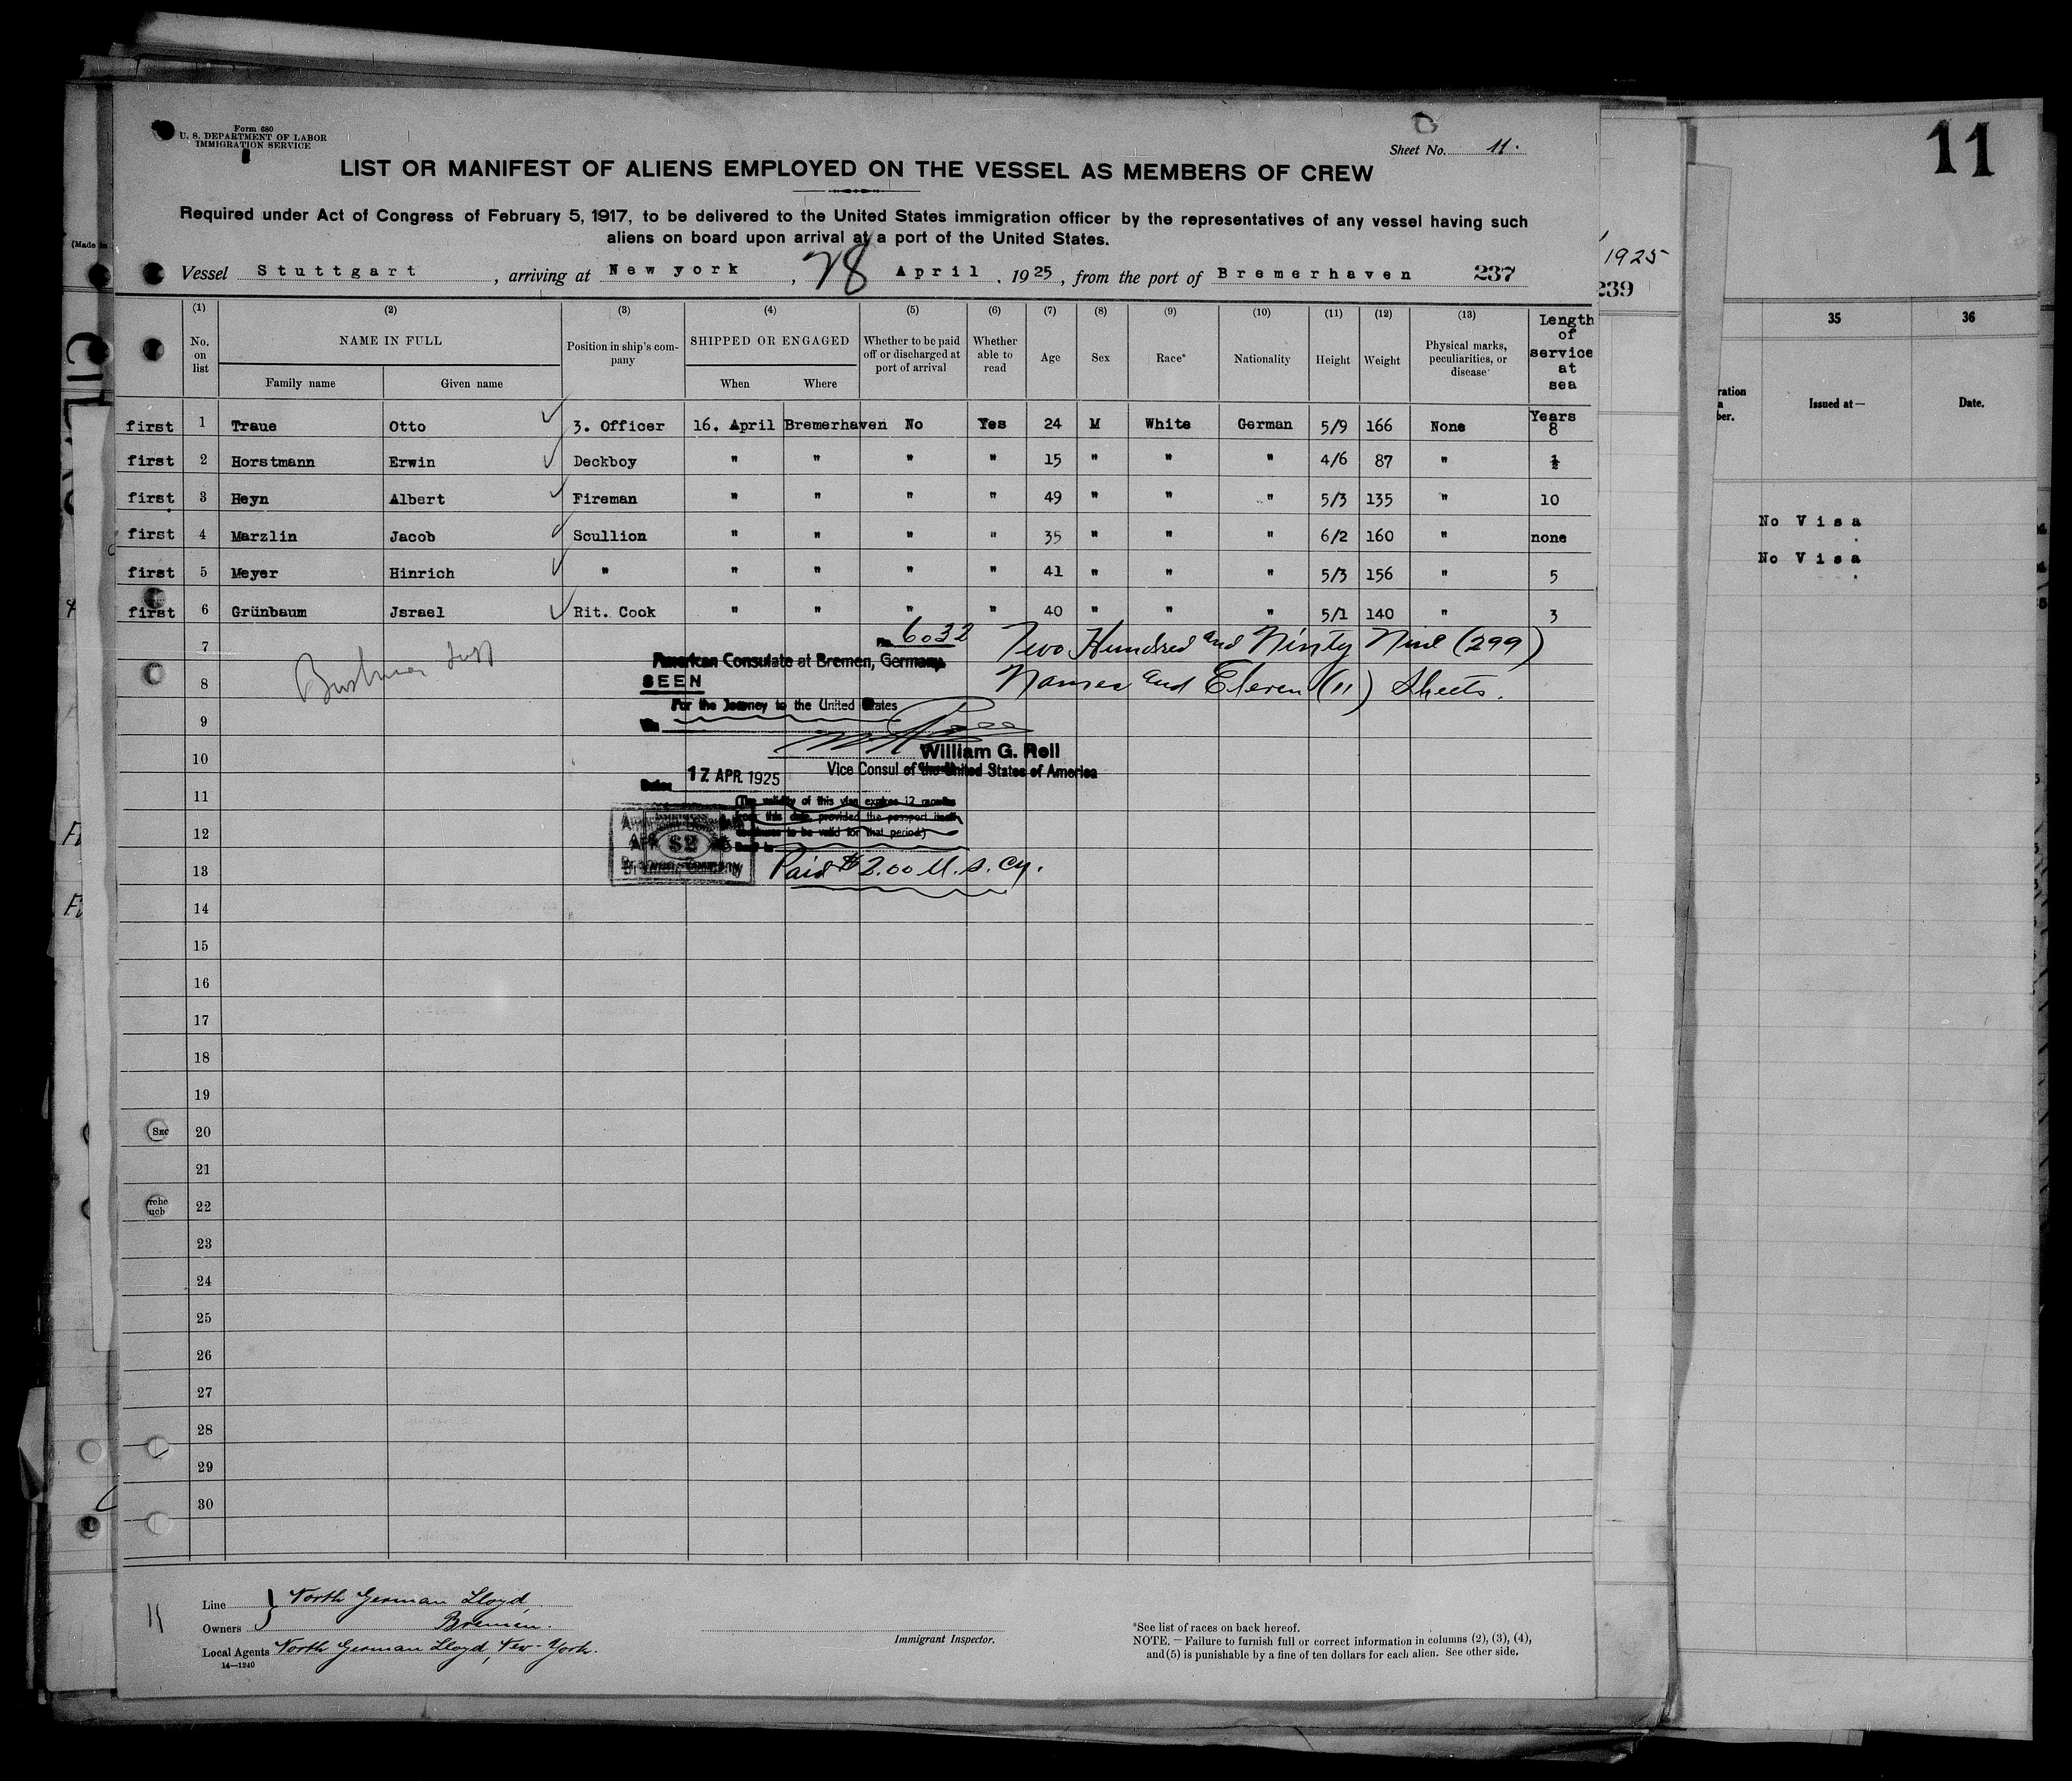 11
Form 680
U. S. DEPARTMENT OF LABOR
IMMIGRATION SERVICE
Sheet No. 11.
LIST OR MANIFEST OF ALIENS EMPLOYED ON THE VESSEL AS MEMBERS OF CREW
Required under Act of Congress of February 5, 1917, to be delivered to the United States immigration officer by the representatives of any vessel having such
aliens on board upon arrival at a port of the United States.
Vessel Stuttgart, arriving at New york, 28 April, 1925, from the port of Bremerhaven 237
(1) (2) (3) (4) (5) (6) (7) (8) (9) (10) (11) (12) (13)
No. on list NAME IN FULL Family name Given name Position in ship's company SHIPPED OR ENGAGED When Where Whether to be paid off or discharged at port of arrival Whether able to read Age Sex Race* Nationality Height Weight Physical marks, peculiarities, or disease Length of service at sea
first 1 Traue Otto 3. Officer 16. April Bremerhaven No Yes 24 M White German 5/9 166 None Years 8
first 2 Horstmann Erwin Deckboy " " " " 15 " " " 4/6 87 " ½
first 3 Heyn Albert Fireman " " " " 49 " " " 5/3 135 " 10
first 4 Marzlin Jacob Scullion " " " " 35 " " " 6/2 160 " none
first 5 Meyer Hinrich " " " " " 41 " " " 5/3 156 " 5
first 6 Grünbaum Jsrael Rit. Cook " " " " 40 " " " 5/1 140 " 3
7
8
9
10
11
12
13
14
15
16
17
18
19
20
21
22
23
24
25
26
27
28
29
30
No. 6032
American Consulate at Bremen, Germany.
SEEN
For the Journey to the United States
William G. Roll
Vice Consul of the United States of America
Date: 17 APR. 1925
(The validity of this visa expires 12 months
from this date, provided the passport itself
continues to be valid for that period)
$2
Paid $2.00 U.S. Cy.
Two Hundred and Ninty Nine (299)
Names and Eleven (11) Sheets.
11
Line North German Lloyd,
Owners Bremen.
Local Agents North German Lloyd, New-York.
14—1240
Immigrant Inspector.
*See list of races on back hereof.
NOTE.—Failure to furnish full or correct information in columns (2), (3), (4),
and (5) is punishable by a fine of ten dollars for each alien. See other side.
1925
239
35 36
Issued at— Date.
No Visa
No Visa